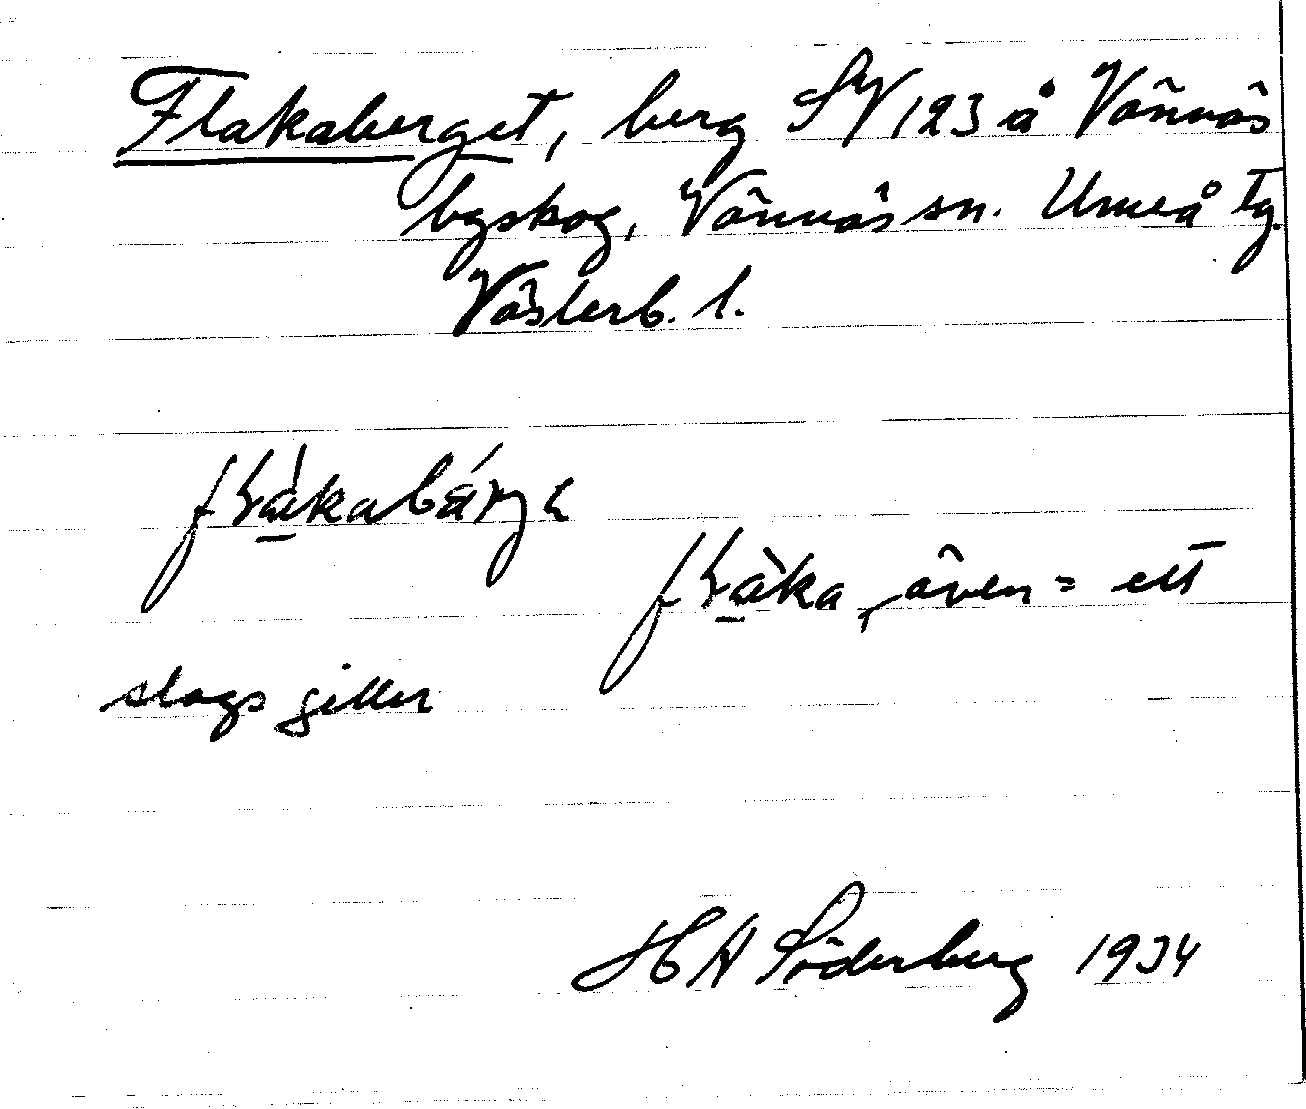 Flakaberget, berg SV 123 å Vännäs
byskog, Vännäs sn. Umeå tg.
Västerb. l.
även = ett
slags giller
H A Söderberg 1934